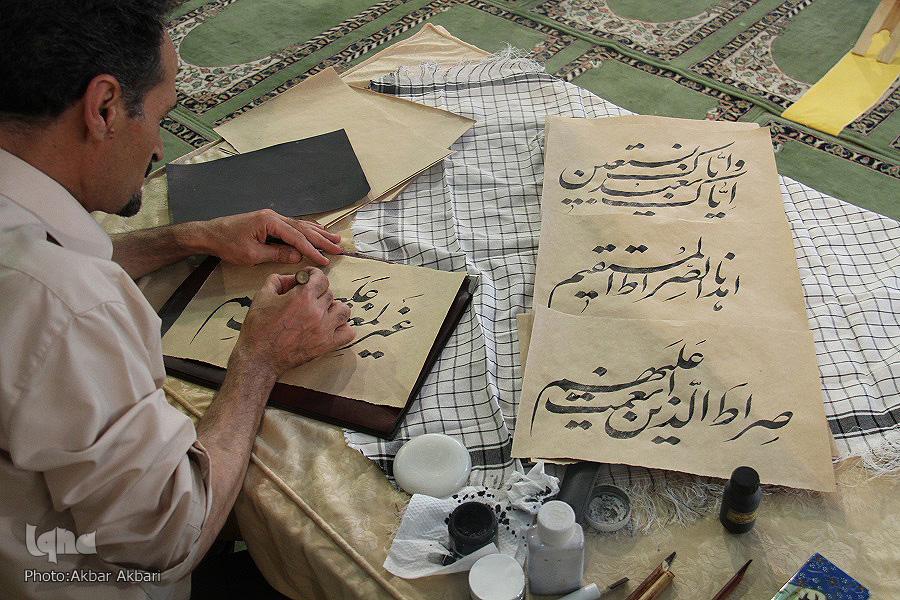 ایّاک نعبد وایّاک نستعین
اهدنا الصراط المستقیم
صراط الّذین انعمت علیهم
غیر
iqna
Photo:Akbar Akbari